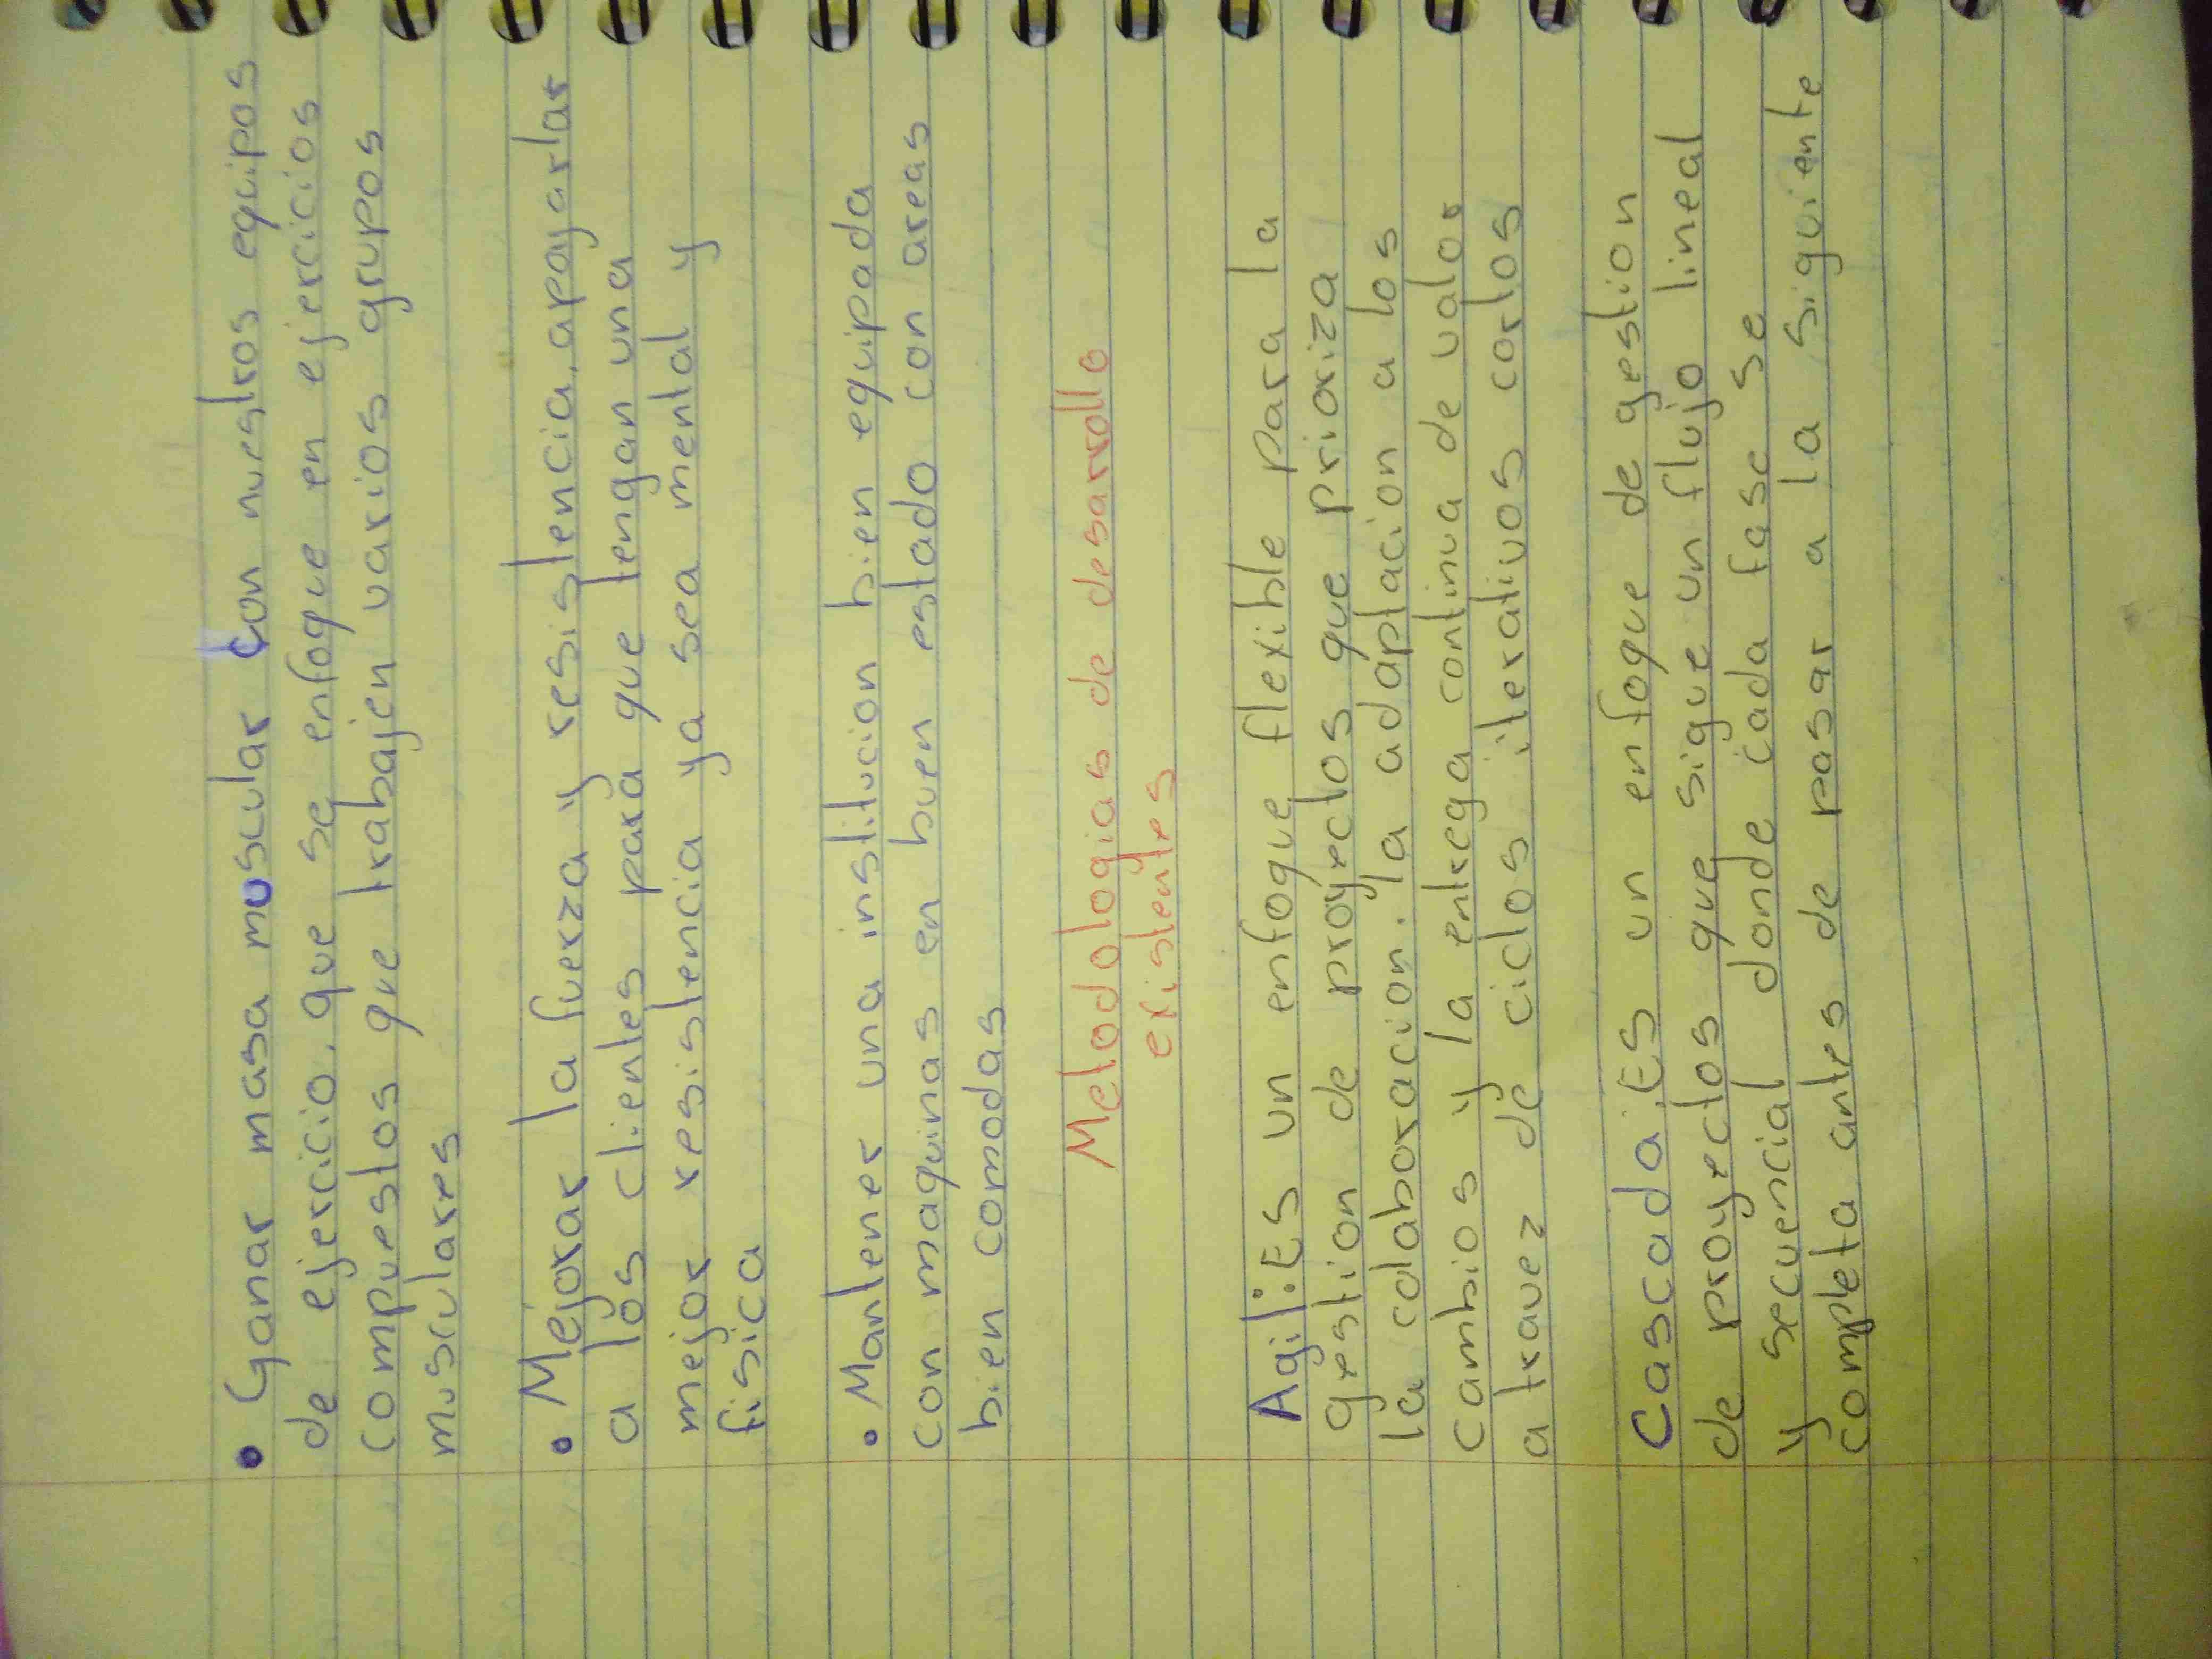 • Ganar masa muscular con nuestros equipos
de ejercicio, que se enfoque en ejercicios
compuestos que trabajen varios grupos
musculares
• Mejorar la fuerza y resistencia, apoyarlar
a los clientes para que tengan una
mejor resistencia ya sea mental y
fisica
• Mantener una institucion bien equipada
con maquinas en buen estado con areas
bien comodas
Metodologias de desarrollo
existentes
Agil: Es un enfoque flexible para la
gestion de proyectos que prioriza
la colaboracion, la adaptacion a los
cambios y la entrega continua de valor
a travez de ciclos iterativos cortos
Cascada: Es un enfoque de gestion
de proyectos que sigue un flujo lineal
y secuencial donde cada fase se
completa antes de pasar a la siguiente